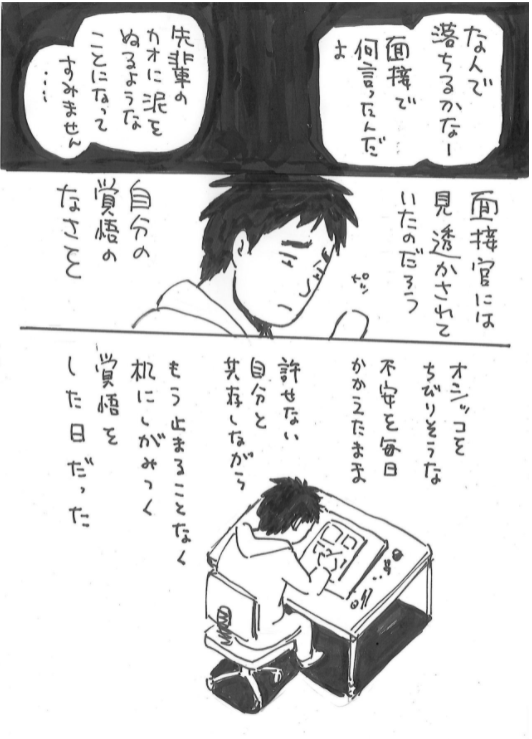 なんで
落ちるかなー
面接で
何言ったんだ
よ
先輩の
カオに泥を
ぬるような
ことになって
すみません
…
面接官には
見透かされて
いたのだろう
ピッ
自分の
覚悟の
なさを
オシッコを
ちびりそうな
不安を毎日
かかえたまま
許せない
自分と
共存しながら
もう止まることなく
机にしがみつく
覚悟を
した日だった